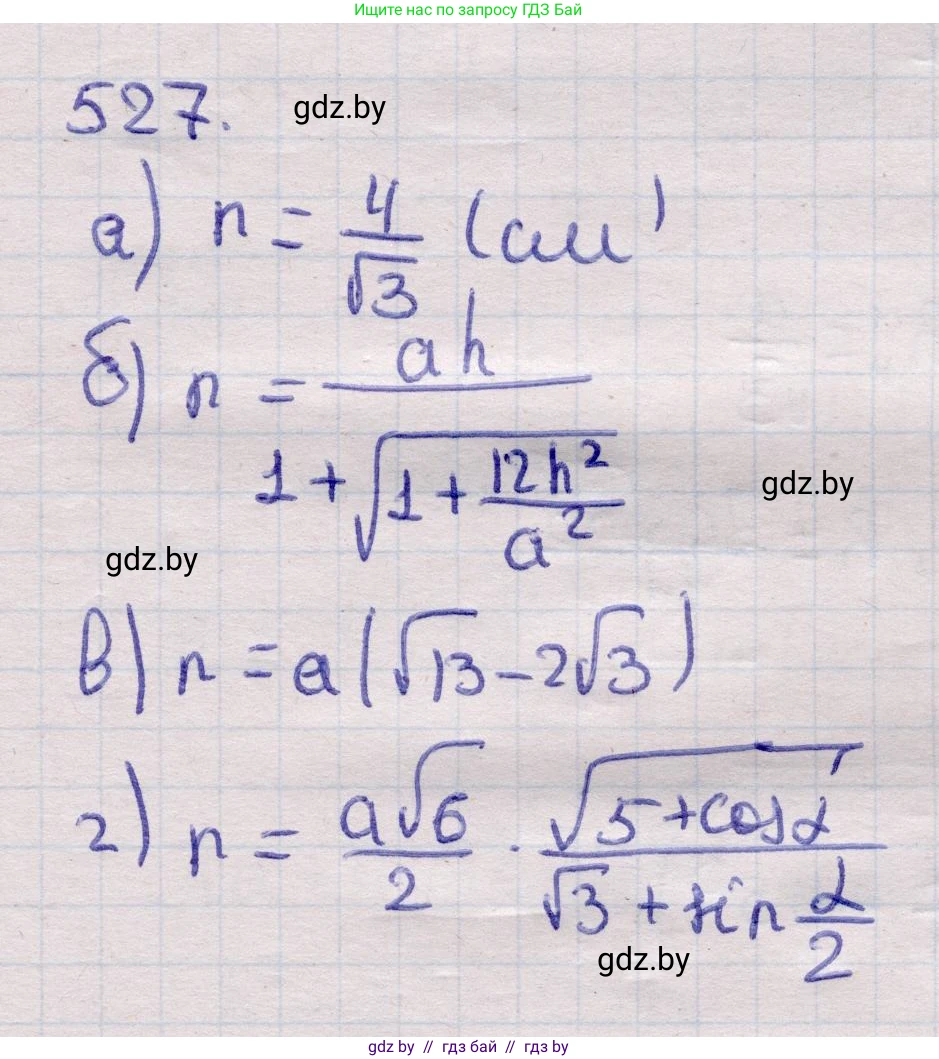 Ищите нас по запросу ГДЗ Бай
527. gdz.by
а) n = 4/√3 (см)
б) n = ah / (1 + √(1 + 12h²/a²))
gdz.by
gdz.by
в) n = a(√13 - 2√3)
г) n = a√6/2 · √(5 + cos α) / (√3 + sin α/2)
gdz.by
gdz.by // гдз бай // gdz.by